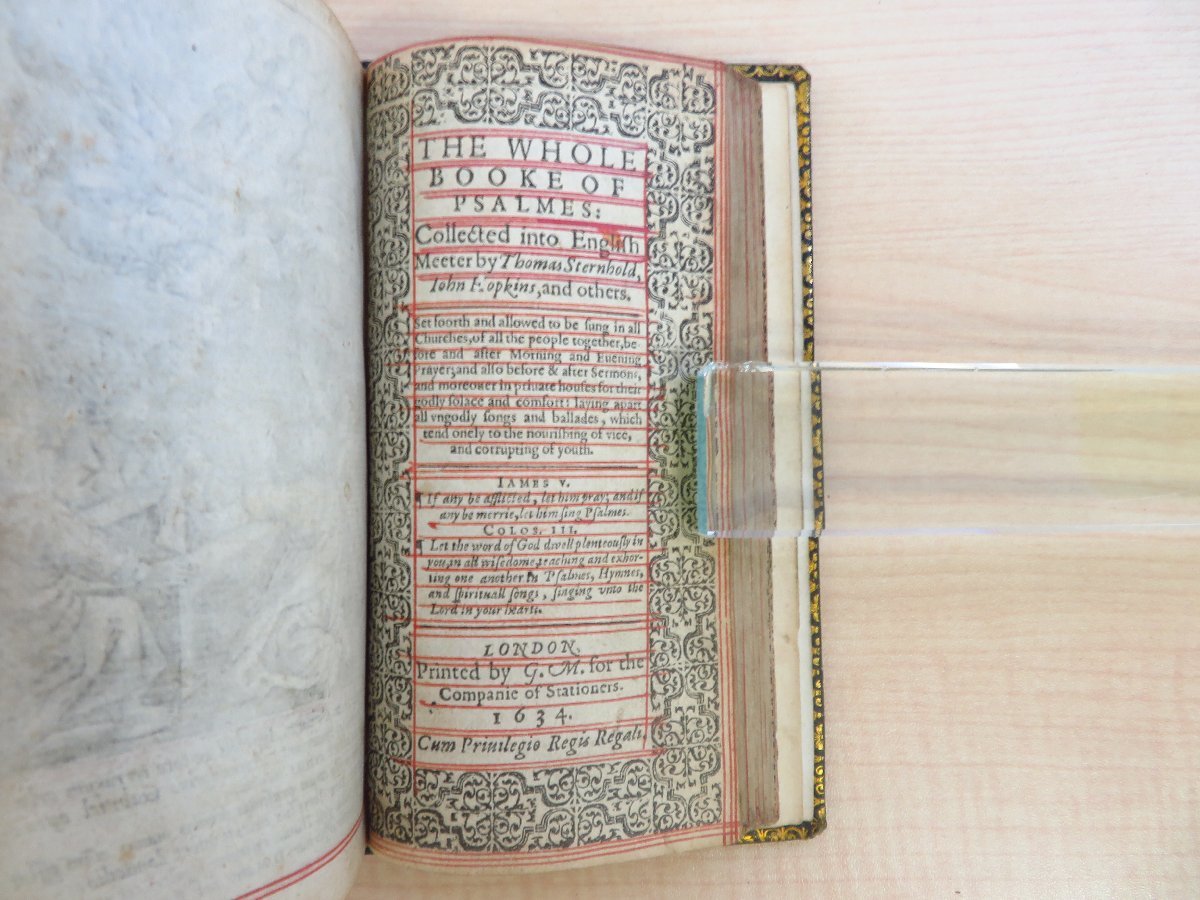 THE WHOLE
BOOKE OF
PSALMES:
Collected into Engliſh
Meeter by Thomas Sternhold,
Iohn Hopkins, and others.
Set foorth and allowed to be ſung in all
Churches, of all the people together, be-
fore and after Morning and Euening
Prayer; and alſo before & after Sermons,
and moreouer in priuate houſes for their
godly ſolace and comfort: laying apart
all vngodly ſongs and ballades, which
tend onely to the nouriſhing of vice,
and corrupting of youth.
IAMES V.
¶ If any be afflicted, let him pray; and if
any be merrie, let him ſing Pſalmes.
COLOS. III.
¶ Let the word of God dwell plenteouſly in
you, in all wiſedome, teaching and exhor-
ting one another in Pſalmes, Hymnes,
and ſpirituall ſongs, ſinging vnto the
Lord in your hearts.
LONDON,
Printed by G. M. for the
Companie of Stationers.
1634.
Cum Priuilegio Regis Regali.